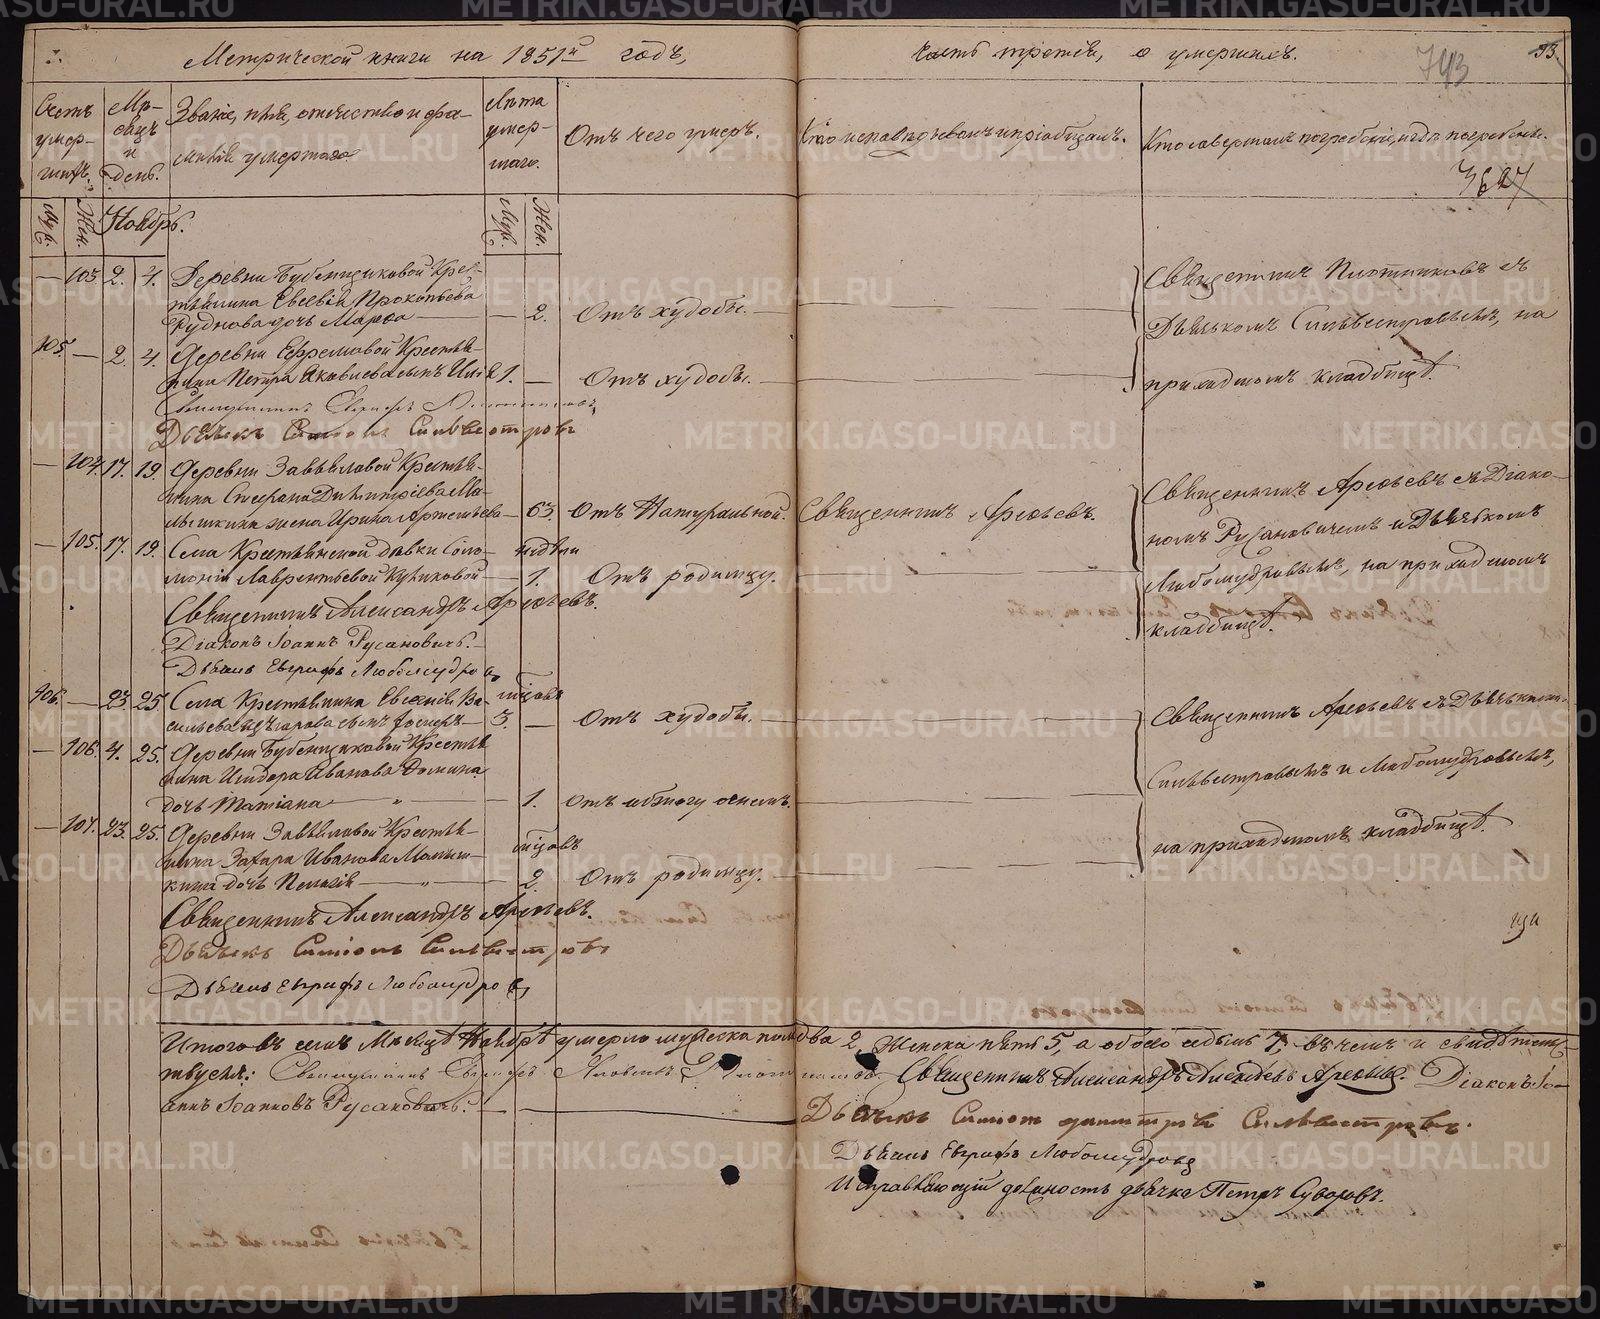 Метрической книги на 1851й годъ,
Часть третія, о умершихъ.
743
93.
Счетъ умер-шихъ.
Мѣ-сяцъ и день.
Званіе, имя, отчество и фа-
милія умершаго
Лѣта умер-шаго.
Отъ чего умеръ.
Кто исповѣдовалъ и пріобщалъ.
Кто совершалъ погребеніе, и гдѣ погребены.
3627
Муж. Жен. Ноябрь. Муж. Жен.
— 103. 2. 4. Деревни Бубенщиковой Крес-
тьянина Евсевія Прокопьева
Руднова дочь Марѳа — — 2. Отъ худобы.
Священникъ Плотниковъ съ
Дьячкомъ Сильвестровымъ, на
приходскомъ кладбищѣ.
105. — 2. 4. Деревни Ефремовой Крестья-
нина Петра Яковлева сынъ Илья 1. — Отъ худобы.
Священникъ Евграфъ
Дьячекъ Симіонъ Сильвестровъ
— 104. 17. 19. Деревни Завьяловой Крестья-
нина Стефана Димитріева Ма-
лышкина жена Ирина Артемьева — 63. Отъ Натуральной. Священникъ Арефьевъ.
Священникъ Арефьевъ съ Діако-
номъ Русановичемъ и Дьячкомъ
Любомудровымъ, на приходскомъ
кладбищѣ.
— 105. 17. 19. Села Крестьянской дѣвки Соло- недѣли
моніи Лаврентьевой Куликовой — 1. Отъ родимцу.
Священникъ Александръ Арефьевъ.
Діаконъ Іоаннъ Русановичъ.
Дьячекъ Евграфъ Любомудровъ
106. — 23. 25. Села Крестьянина Евгенія Ва- мѣсяцовъ
сильева сынъ 3. — Отъ худобы.
Священникъ Арефьевъ съ Дьячками
Сильвестровымъ и Любомудровымъ,
на приходскомъ кладбищѣ.
— 106. 4. 25. Деревни Бубенщиковой Крестья-
нина Исидора Иванова Домнина
дочь Татіана — „ — — 1. Отъ обжогу огнемъ.
— 107. 23. 25. Деревни Завьяловой Крестья- мѣсяцовъ
нина Захара Иванова Малыш-
кина дочь Пелагія — „ — 2. Отъ родимцу.
Священникъ Александръ Арефьевъ.
Дьячекъ Симіонъ Сильвестровъ
Дьячекъ Евграфъ Любомудровъ
Итого въ семъ Мѣсяцѣ Ноябрѣ умерло мужеска пола два 2, Женска пять 5, а обоего седмь 7, въ чемъ и свидѣтельс-
твуемъ: Священникъ Евграфъ Плотниковъ. Священникъ Александръ Алексѣевъ Арефьевъ. Діаконъ Іо-
аннъ Іоанновъ Русановичъ.
Дьячекъ Симіонъ Димитріевъ Сильвестровъ.
Дьячекъ Евграфъ Любомудровъ
Исправляющій должность дьячка Петръ Суворовъ.
METRIKI.GASO-URAL.RU